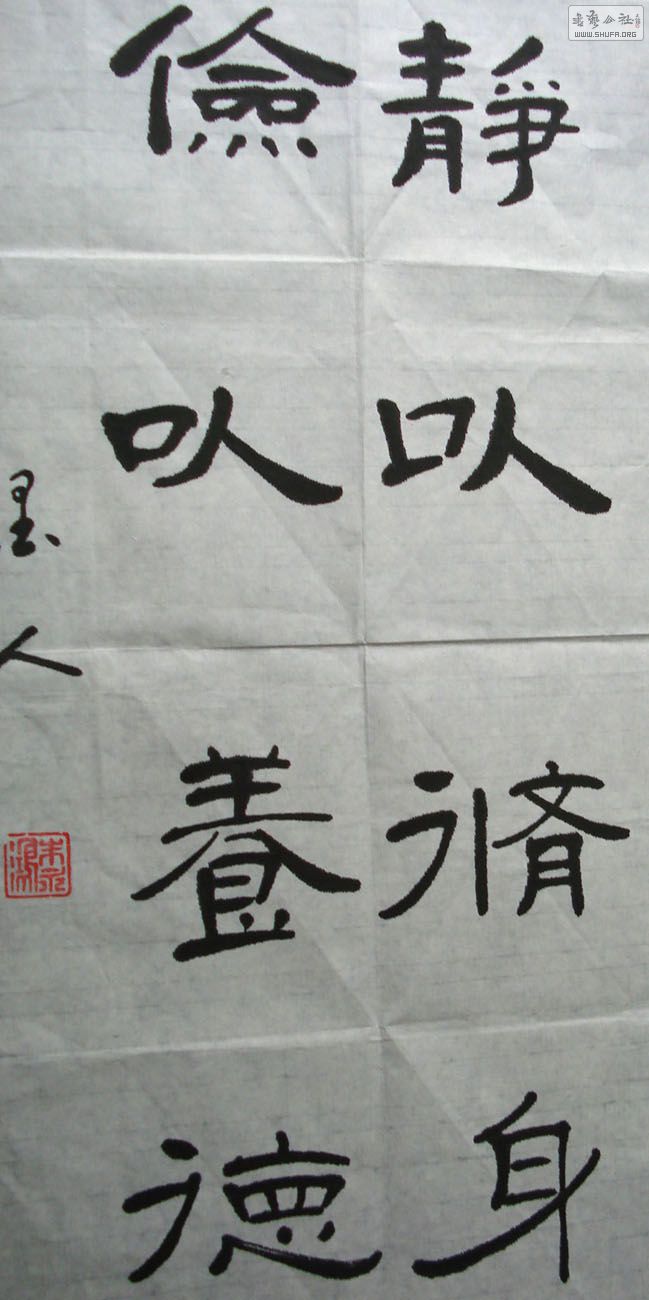 靜以脩身
儉以養德
墨人
WWW.SHUFA.ORG